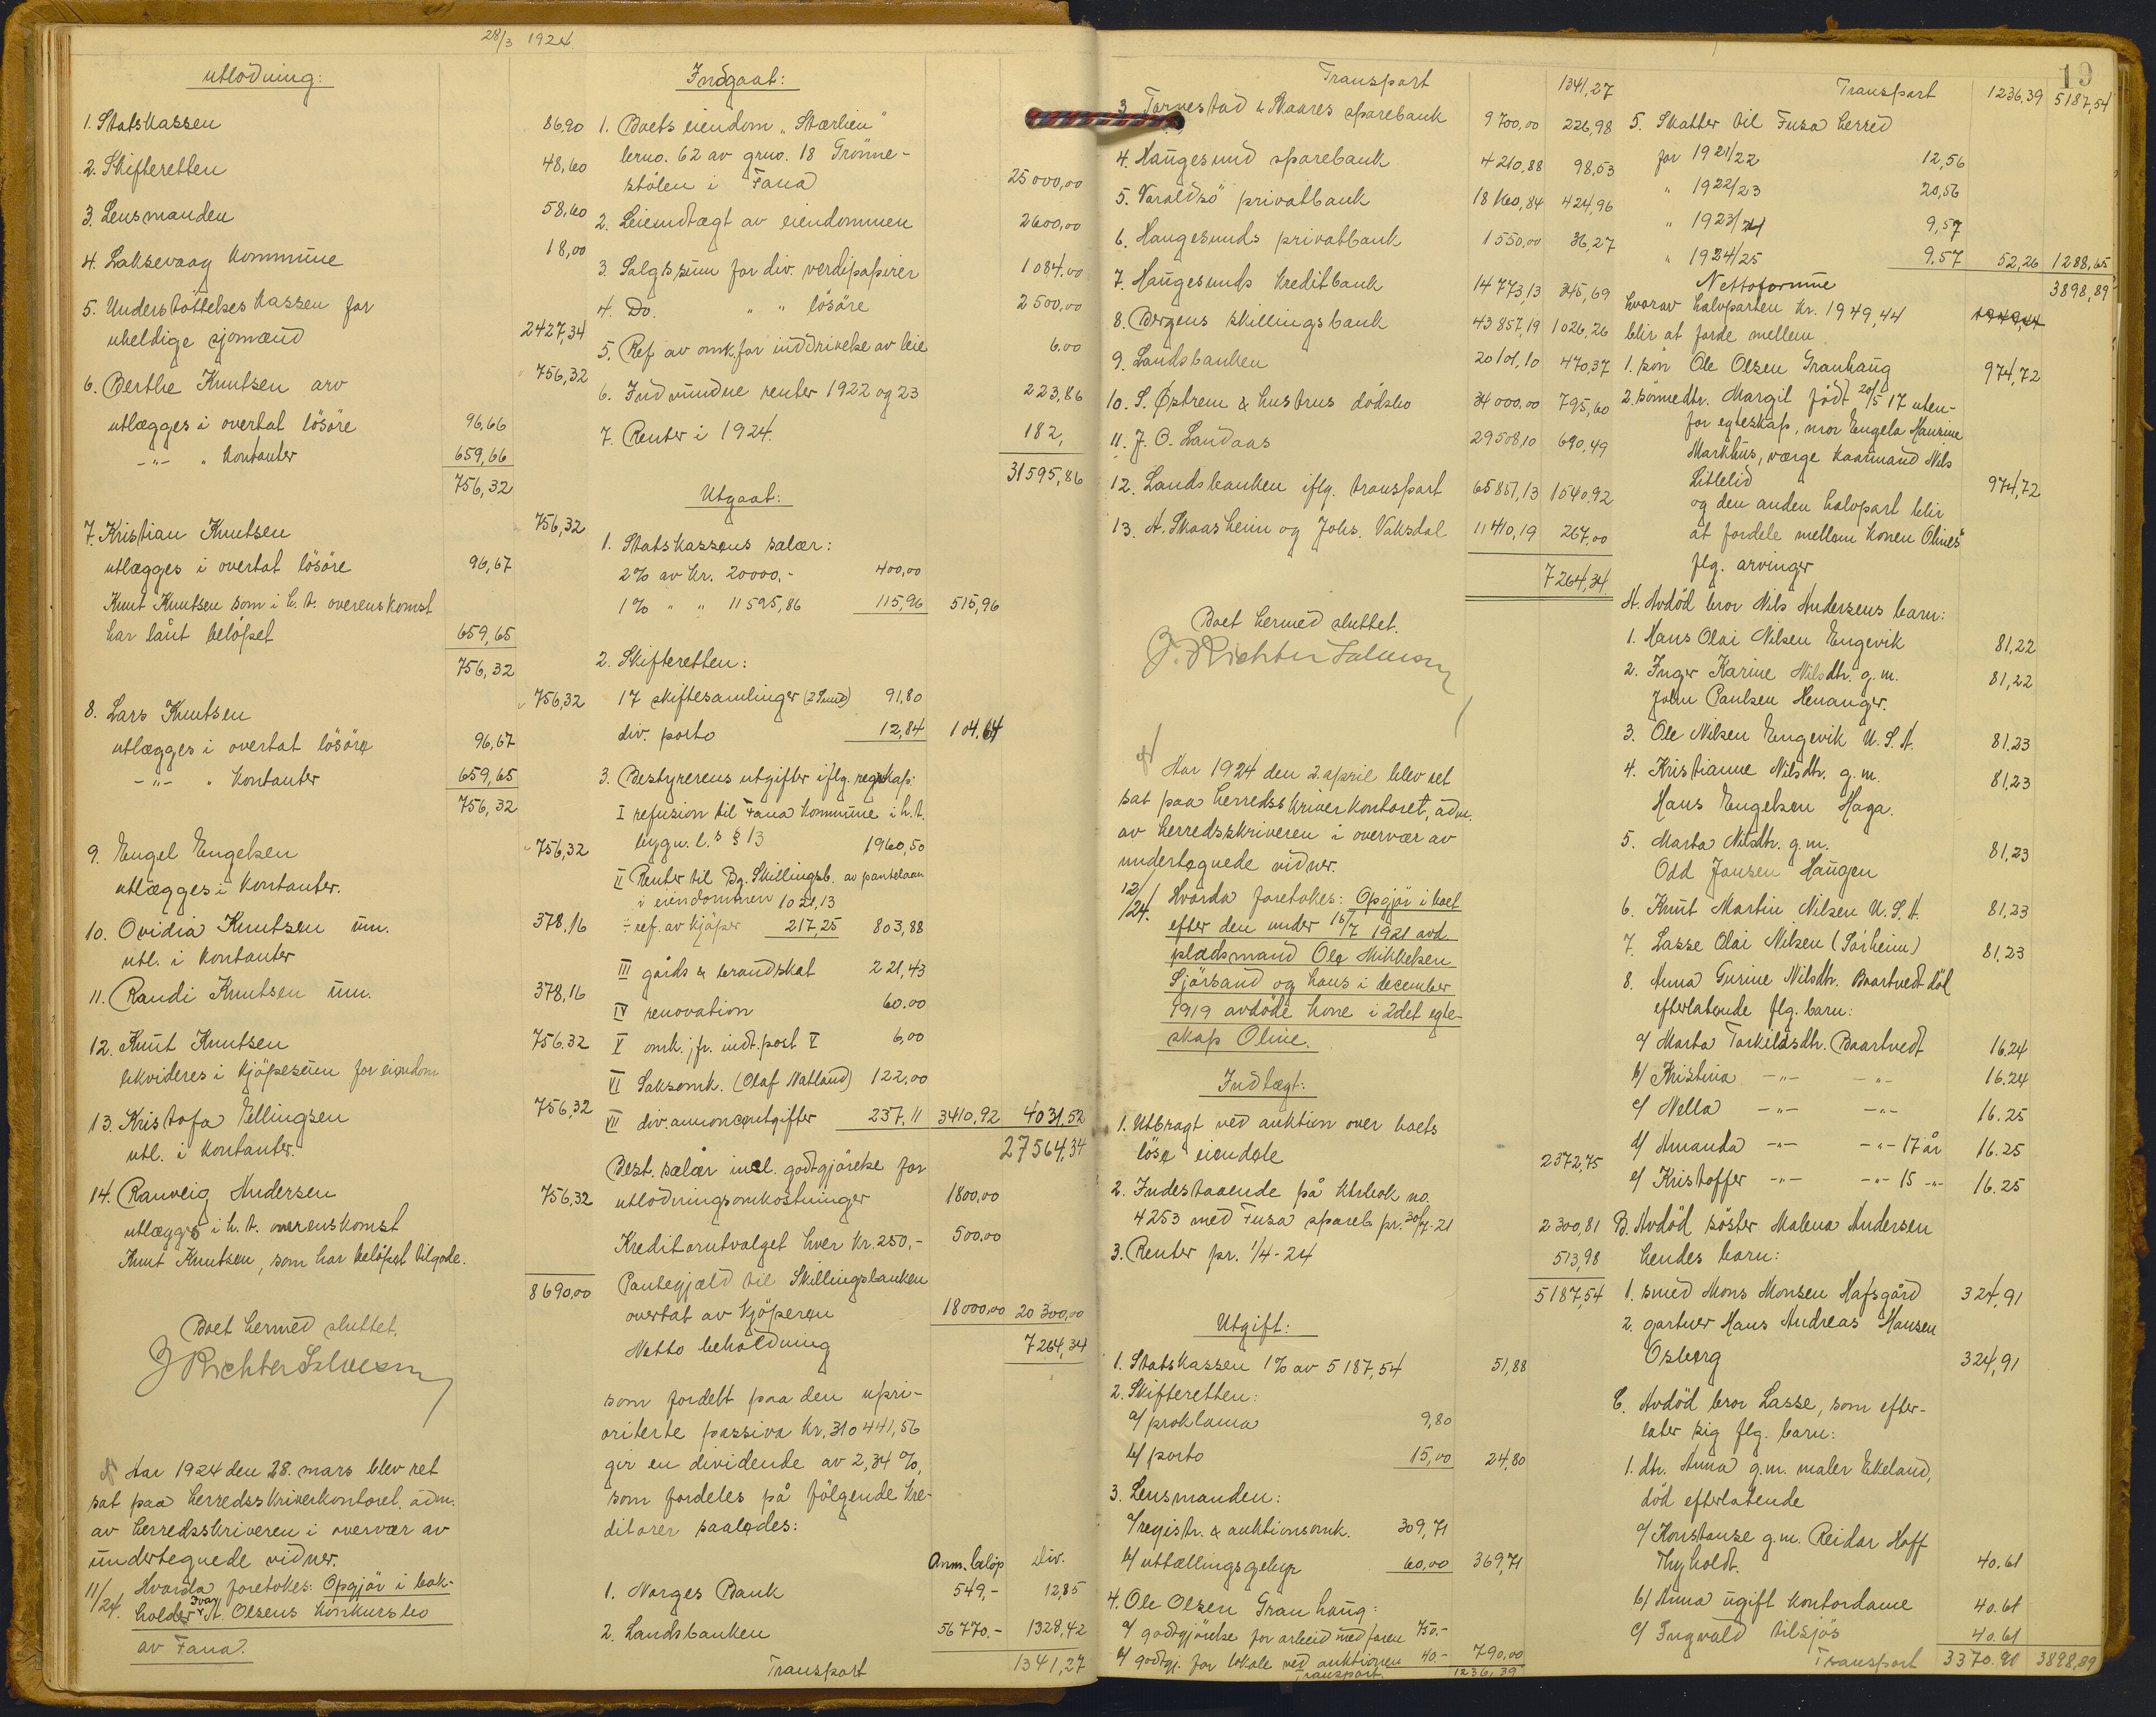 28/3 1924.
utlodning:
1. Statskassen 86,90
2. Skifteretten 48,60
3. Lensmanden 58,60
4. Laksevaag kommune 18,00
5. Understöttelseskassen for
uheldige sjømænd 2427,34
6. Berthe Knutsen arv 756,32
utlægges i overtat lösöre 96,66
-"- " kontanter 659,66
756,32
7. Kristian Knutsen 756,32
utlægges i overtat lösöre 96,67
Knut Knutsen som i h. t. overenskomst
har lånt belöpet 659,65
756,32
8. Lars Knutsen 756,32
utlægges i overtat lösöre 96,67
-"- " kontanter 659,65
756,32
9. Engel Engelsen 756,32
utlægges i kontanter.
10. Ovidia Knutsen um. 378,16
utl. i kontanter
11. Randi Knutsen um. 378,16
12. Knut Knutsen 756.32
likvideres i kjöpesum for eiendom
13. Kristofa Ellingsen 756,32
utl. i kontanter.
14. Ranveig Andersen 756,32
utlægges i h. t. overenskomst
Knut Knutsen, som har belöpet tilgode.
8690,00
Boet hermed sluttet.
J Richter Salvesen
Aar 1924 den 28. mars blev ret
sat paa herredsskriverkontoret, adm.
av herredsskriveren i overvær av
undertegnede vidner.
11/24. Hvorda foretokes: Opgjör i bok-
holder Ivar A. Olsens konkursbo
av Fana.
Indgaat:
1. Boets eiendom "Stærlien"
brno. 62 av grno. 18 Grönne-
stölen i Fana 25000,00
2. Leieindtægt av eiendommen 2600,00
3. Salgssum for div. verdipapirer 1084.00
4. Do. " " lösöre 2500,00
5. Ref av omk. for inddrivelse av leie 6.00
6. Indvundne renter 1922 og 23 223,86
7. Renter i 1924. 182,
31595,86
Utgaat:
1. Statskassens salær:
2% av kr. 20000,- 400,00
1% " " 11595,86 115,96 515,96
2. Skifteretten:
17 skiftesamlinger 91,80
div. porto 12,84 104.64
3. Bestyrerens utgifter iflg. regnskap:
I refusion til Fana kommune i h.t.
bygn. l.s § 13 1960,50
II Renter til Bg. Skillingsb. av pantelaan
i eiendommen 1021,13
÷ ref. av kjöper 217,25 803,88
III gårds & brandskat 221,43
IV renovation 60.00
V omk. jfr. indt. post V 6,00
VI Saksomk. (Olaf Natland) 122,00
VII div. annonceutgifter 237,11 3410,92 4031,52
27564,34
Best. salær incl. godtgjörelse for
utlodningsomkostninger 1800,00
Kreditorutvalget hver kr. 250,- 500,00
Pantegjæld til Skillingsbanken
overtat av kjöperen 18000,00 20300,00
Netto beholdning 7264,34
som fordelt paa den upri-
oriterte passiva kr. 310441,56
gir en dividende av 2,34 %,
som fordeles på fölgende kre-
ditorer saaledes:
Anm. belöp Div.
1. Norges Bank 549,- 12,85
2. Landsbanken 56770.- 1328,42
Transport 1341,27
Transport 1341,27
3. Torvestad & Skaares sparebank 9700,00 226,98
4. Haugesund sparebank 4210,88 98,53
5. Varaldsö privatbank 18160,84 424,96
6. Haugesunds privatbank 1550,00 36,27
7. Haugesunds kreditbank 14773,13 345,69
8. Bergens skillingsbank 43857,19 1026,26
9. Landsbanken 20101,10 470,37
10. S. Øptrem & hustrus dödsbo 34000.00 795,60
11. J. O. Landaas 29508,10 690,49
12. Landsbanken iflg. transport 65851,13 1540.92
13. A. Skaasheim og Johs. Vaksdal 11410,19 267,00
7264,34
Boet hermed sluttet.
J. Richter Salvesen
Aar 1924 den 2. april blev ret
sat paa herredsskriverkontoret, adm.
av herredsskriveren i overvær av
undertegnede vidner.
12/24. Hvorda foretokes: Opgjör i boet
efter den under 16/7 1921 avd.
pladsmand Ole Mikkelsen
Sjörsand og hans i december
1919 avdöde kone i 2det egte-
skap Oline.
Indtægt:
1. Utbragt ved auktion over boets
löse eiendele 2372,75
2. Indestaaende på ktrbok no.
4253 med Fusa spareb. pr. 30/7-21 2300,81
3. Renter pr. 1/4-24 513,98
5187,54
Utgift:
1. Statskassen 1% av 5187,54 51,88
2. Skifteretten:
a/ proklama 9,80
b/ porto 15,00 24,80
3. Lensmanden:
a/ registr. & auktionsomk. 309,71
b/ uttællingsgebyr 60,00 369,71
4. Ole Olsen Granhaug:
a/ godtgjörelse for arbeid med faren 750.-
b/ godtgj. for lokale ved auktionen 40.- 790,00
Transport. 1236,39
19
Transport 1236,39 5187,54
5. Skatter til Fusa herred
for 1921/22 12,56
" 1922/23 20,56
" 1923/24 9,57
" 1924/25 9.57 52,26 1288,65
Nettoformue 3898,89
hvorav halvparten kr. 1949,44 1949,44
blir at forde mellem
1. sön Ole Olsen Granhaug 974,72
2. sönnedtr. Margit född 20/5 17 uten-
for egteskap, mor Engela Hansine
Markhus, værge kaarmand Nils
Litlelid 974,72
og den anden halvpart blir
at fordele mellem konen Olines
flg. arvinger
A. Avdöd bror Nils Andersens barn:
1. Hans Olai Nilsen Engevik 81,22
2. Inger Karine Nilsdtr. g. m. 81,22
John Paulsen Henanger.
3. Ole Nilsen Engevik U. S. A. 81,23
4. Kristianne Nilsdtr. g. m. 81,23
Hans Engelsen Haga.
5. Marta Nilsdtr. g. m. 81,23
Odd Jansen Haugen
6. Knut Martin Nilsen U. S. A. 81,23
7. Lasse Olai Nilsen (Sörheim) 81,23
8. Anna Gurine Nilsdtr. Baartvedt död
efterlatende flg. barn:
a/ Marta Torkildsdtr. Baartvedt 16.24
b/ Kristina -"- -"- 16.24
c/ Nella -"- -"- 16.25
d/ Amanda -"- -"- 17 år 16.25
e/ Kristoffer -"- -"- 15 -"- 16.25
B. Avdöd söster Malena Andersen
hendes barn:
1. smed Mons Monsen Hafsgård 324,91
2. gartner Hans Andreas Hansen
Osberg 324,91
C. Avdöd bror Lasse, som efter-
later sig flg. barn:
1. dtr. Anna g.m. maler Ekeland,
död efterlatende
a/ Konstanse g.m. Reidar Hoff
Thyholdt. 40.61
b/ Anna ugift kontordame 40.61
c/ Ingvald tilsjös 40.61
Transport 3370.91 3898,89